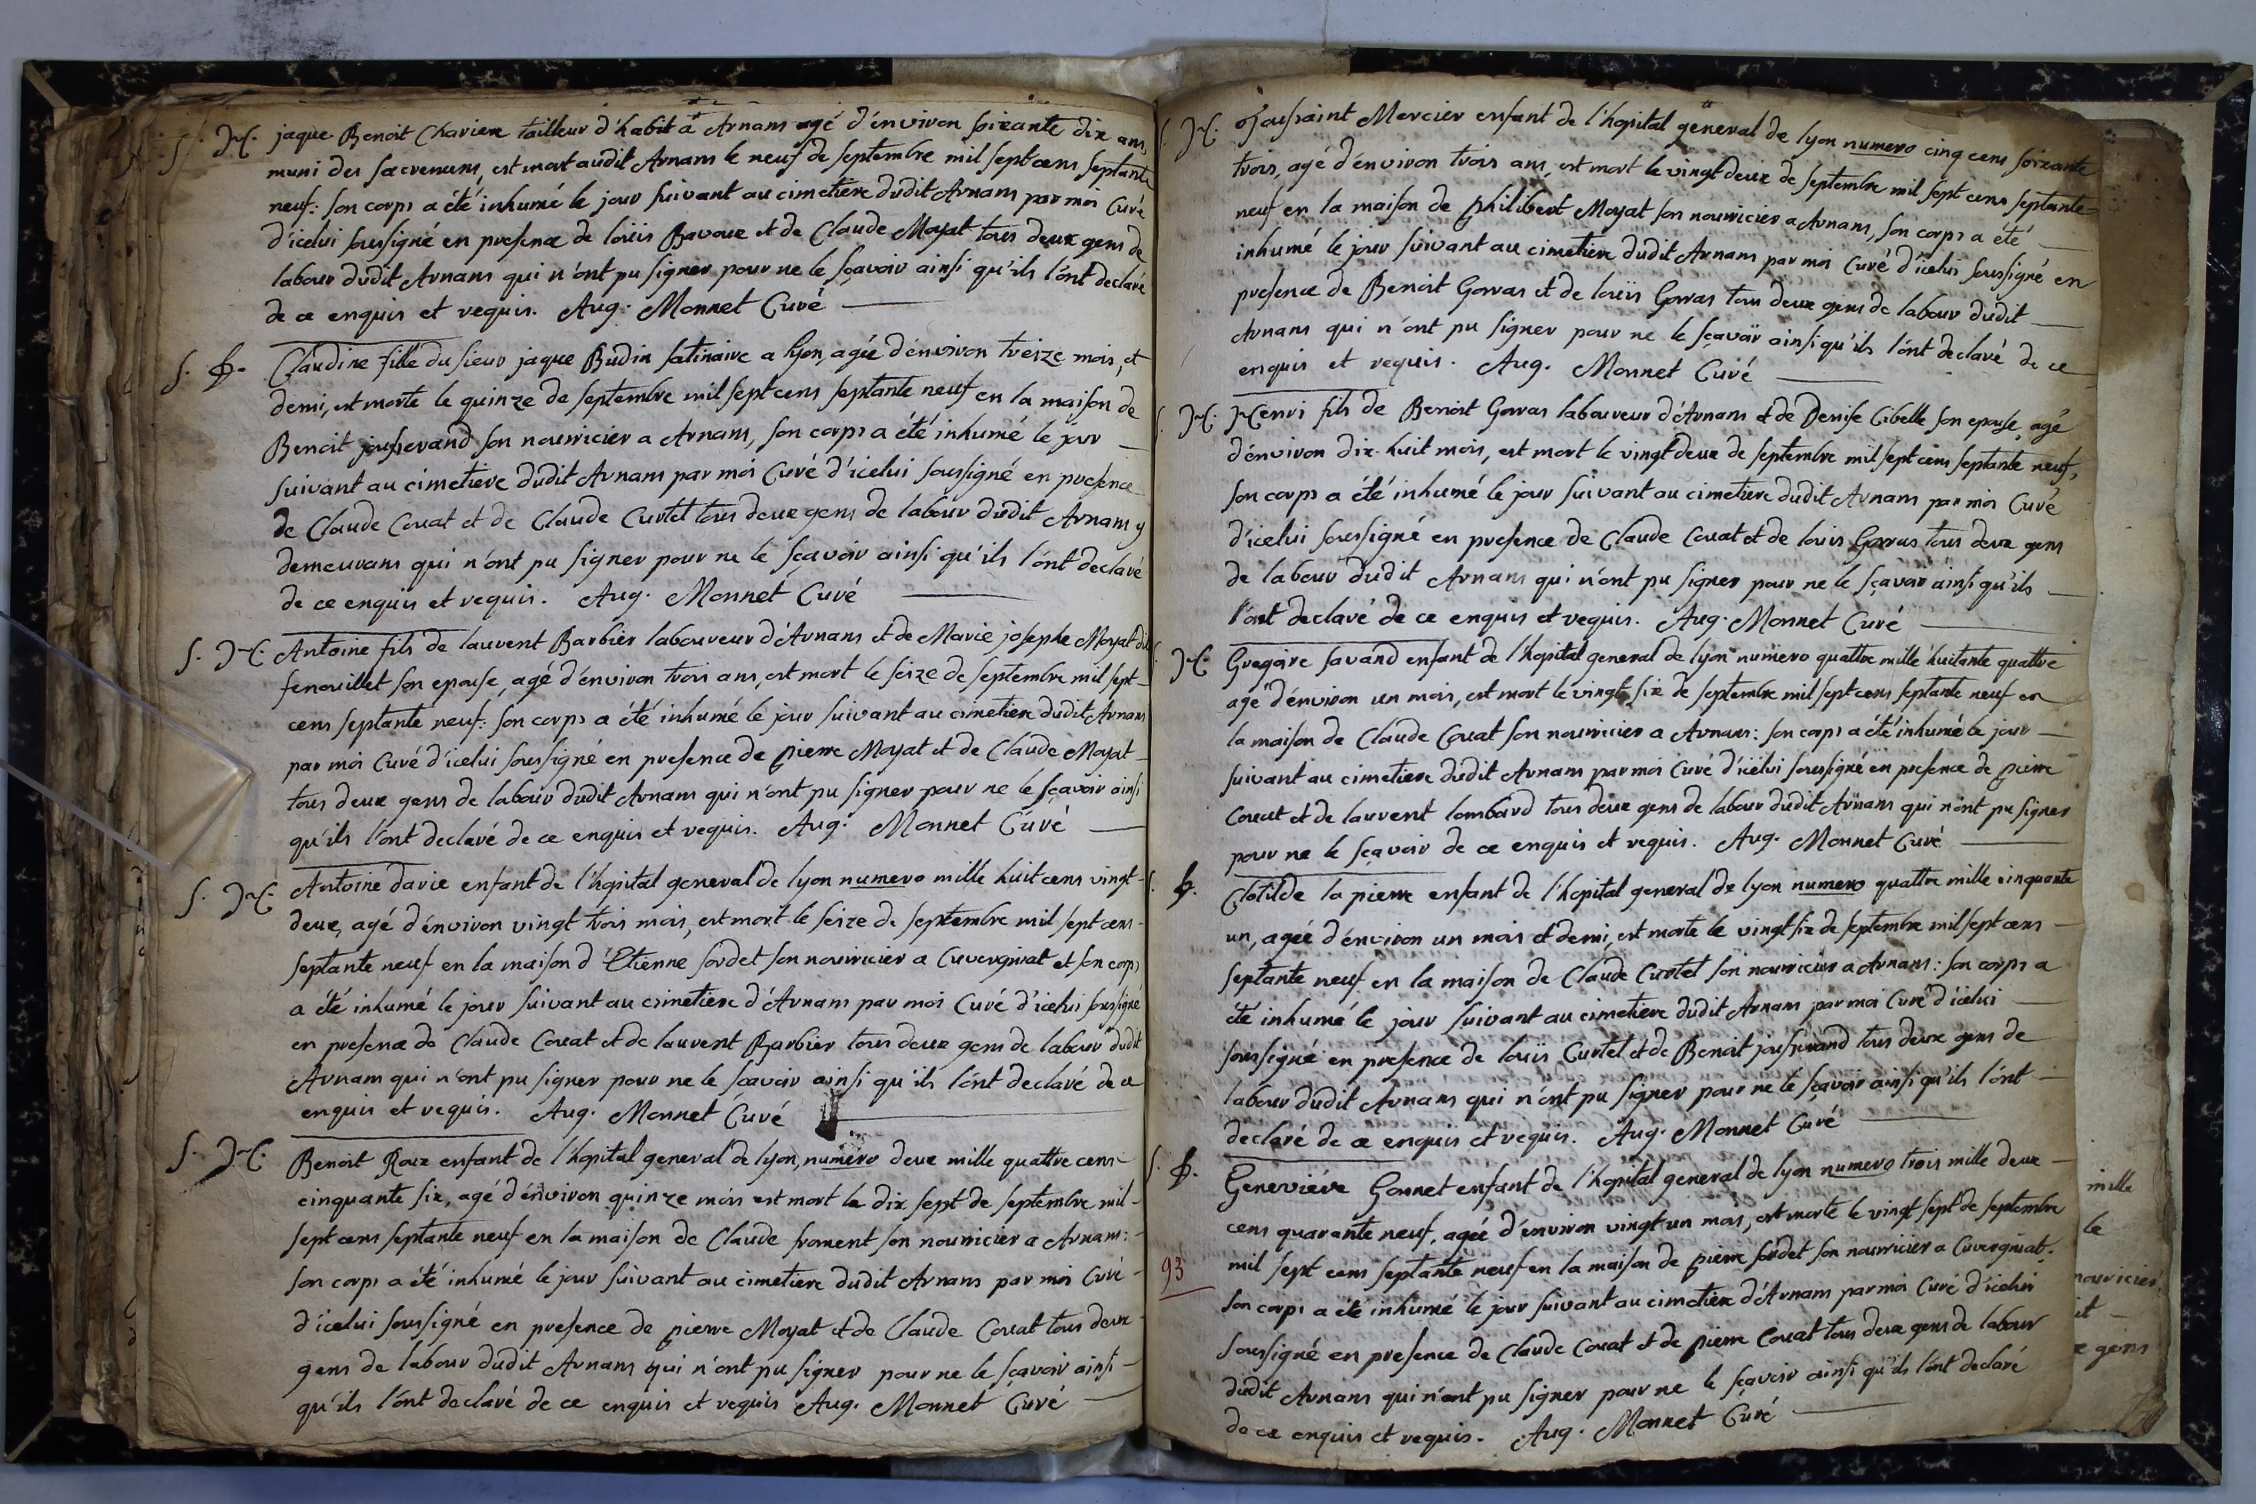 S. H. jaque Benoit Chariere tailleur d'habit à Arnans agé d'énviron soixante dix ans,
muni des sacremens, est mort audit Arnans le neuf de septembre mil sept cens septante
neuf: son corps a été inhumé le jour suivant au cimetiere dudit Arnans par moi Curé
d'icelui soussigné en presence de loüis Bavoux et de Claude Moyat tous deux gens de
labour dudit Arnans qui n'ont pu signer pour ne le sçavoir ainsi qu'ils l'ónt declaré
de ce enquis et requis. Aug. Monnet Curé
S. f. Claudine fille du sieur jaque Budin satinaire a lyon, agée d'énviron treize mois, et
demi, est morte le quinze de septembre mil sept cens septante neuf en la maison de
Benoit jousserand son nourricier a Arnans, son corps a été inhumé le jour
suivant au cimetiere dudit Arnans par moi Curé d'icelui soussigné en presence
de Claude Couat et de Claude Curtet tous deux gens de labour dudit Arnans y
demeurans qui n'ont pu signer pour ne le sçavoir ainsi qu'ils l'ónt declaré
de ce enquis et requis. Aug. Monnet Curé
S. H. Antoine fils de laurent Barbier laboureur d'Arnans et de Marie josephe Moyat dit
fenouillet son epouse, agé d'énviron trois ans, est mort le seize de septembre mil sept
cens septante neuf: son corps a été inhumé le jour suivant au cimetiere dudit Arnans
par moi Curé d'icelui soussigné en presence de pierre Moyat et de Claude Moyat
tous deux gens de labour dudit Arnans qui n'ont pu signer pour ne le sçavoir ainsi
qu'ils l'ont declaré de ce enquis et requis. Aug. Monnet Curé
S. H. Antoine davie enfant de l'hopital general de lyon numero mille huit cens vingt
deux, agé d'énviron vingt trois mois, est mort le seize de septembre mil sept cens
septante neuf en la maison d'Etienne sordet son nourricier a Cuvergniat et son corps
a été inhumé le jour suivant au cimetiere d'Arnans par moi Curé d'icelui soussigné
en presence de Claude Couat et de laurent Barbier tous deux gens de labour dudit
Arnans qui n'ont pu signer pour ne le sçavoir ainsi qu'ils l'ónt declaré de ce
enquis et requis. Aug. Monnet Curé
S. H. Benoit Roux enfant de l'hopital general de lyon, numéro deux mille quattre cens
cinquante six, agé d'énviron quinze mois est mort le dix sept de septembre mil
sept cens septante neuf en la maison de Claude froment son nourricier a Arnans:
son corps a été inhumé le jour suivant au cimetiere dudit Arnans par moi Curé
d'icelui soussigné en presence de pierre Moyat et de Claude Couat tous deux
gens de labour dudit Arnans qui n'ont pu signer pour ne le sçavoir ainsi
qu'ils l'ónt declaré de ce enquis et requis Aug. Monnet Curé
S. H. Toussaint Mercier enfant de l'hopital general de lyon numero cinq cens soixante
trois, agé d'énviron trois ans, est mort le vingt deux de septembre mil sept cens septante
neuf en la maison de philibert Moyat son nourricier a Arnans, son corps a été
inhumé le jour suivant au cimetiere dudit Arnans par moi Curé d'icelui soussigné en
presence de Benoit Gorras et de loüis Gorras tous deux gens de labour dudit
Arnans qui n'ont pu signer pour ne le sçavoir ainsi qu'ils l'ónt declaré de ce
enquis et requis. Aug. Monnet Curé
S. H. Henri fils de Benoit Gorras laboureur d'Arnans et de Denise Cibelle son epouse, agé
d'énviron dix huit mois, est mort le vingt deux de septembre mil sept cens septante neuf,
son corps a été inhumé le jour suivant au cimetiere dudit Arnans par moi Curé
d'icelui soussigné en presence de Claude Couat et de louis Gorras tous deux gens
de labour dudit Arnans qui n'ont pu signer pour ne le sçavoir ainsi qu'ils
l'ont declaré de ce enquis et requis. Aug. Monnet Curé
S. H. Gregoire savand enfant de l'hopital general de lyon numero quattre mille huitante quattre
agé d'énviron un mois, est mort le vingt six de septembre mil sept cens septante neuf en
la maison de Claude Couat son nourricier a Arnans: son corps a été inhumé le jour
suivant au cimetiere dudit Arnans par moi Curé d'icelui soussigné en presence de pierre
Couat et de laurent lombard tous deux gens de labour dudit Arnans qui n'ont pu signer
pour ne le sçavoir de ce enquis et requis. Aug. Monnet Curé
S. f. Clotilde la pierre enfant de l'hopital general de lyon numero quattre mille cinquante
un, agée d'énviron un mois et demi, est morte le vingt six de septembre mil sept cens
septante neuf en la maison de Claude Curtet son nourricier a Arnans: son corps a
été inhumé le jour suivant au cimetiere dudit Arnans par moi Curé d'icelui
soussigné en presence de louïs Curtet et de Benoit jousserand tous deux gens de
labour dudit Arnans qui n'ont pu signer pour ne le sçavoir ainsi qu'ils l'ónt
declaré de ce enquis et requis. Aug. Monnet Curé
S. f. Geneviéve Gonnet enfant de l'hopital general de lyon numero trois mille deux
cens quarante neuf, agée d'énviron vingt un mois, est morte le vingt sept de septembre
93 mil sept cens septante neuf en la maison de pierre sordet son nourricier a Cuvergniat.
son corps a été inhumé le jour suivant au cimetiere d'Arnans par moi Curé d'icelui
soussigné en presence de Claude Couat et de pierre Couat tous deux gens de labour
dudit Arnans qui n'ont pu signer pour ne le sçavoir ainsi qu'ils l'ónt declaré
de ce enquis et requis. Aug. Monnet Curé
mille
le
nourricier
gens